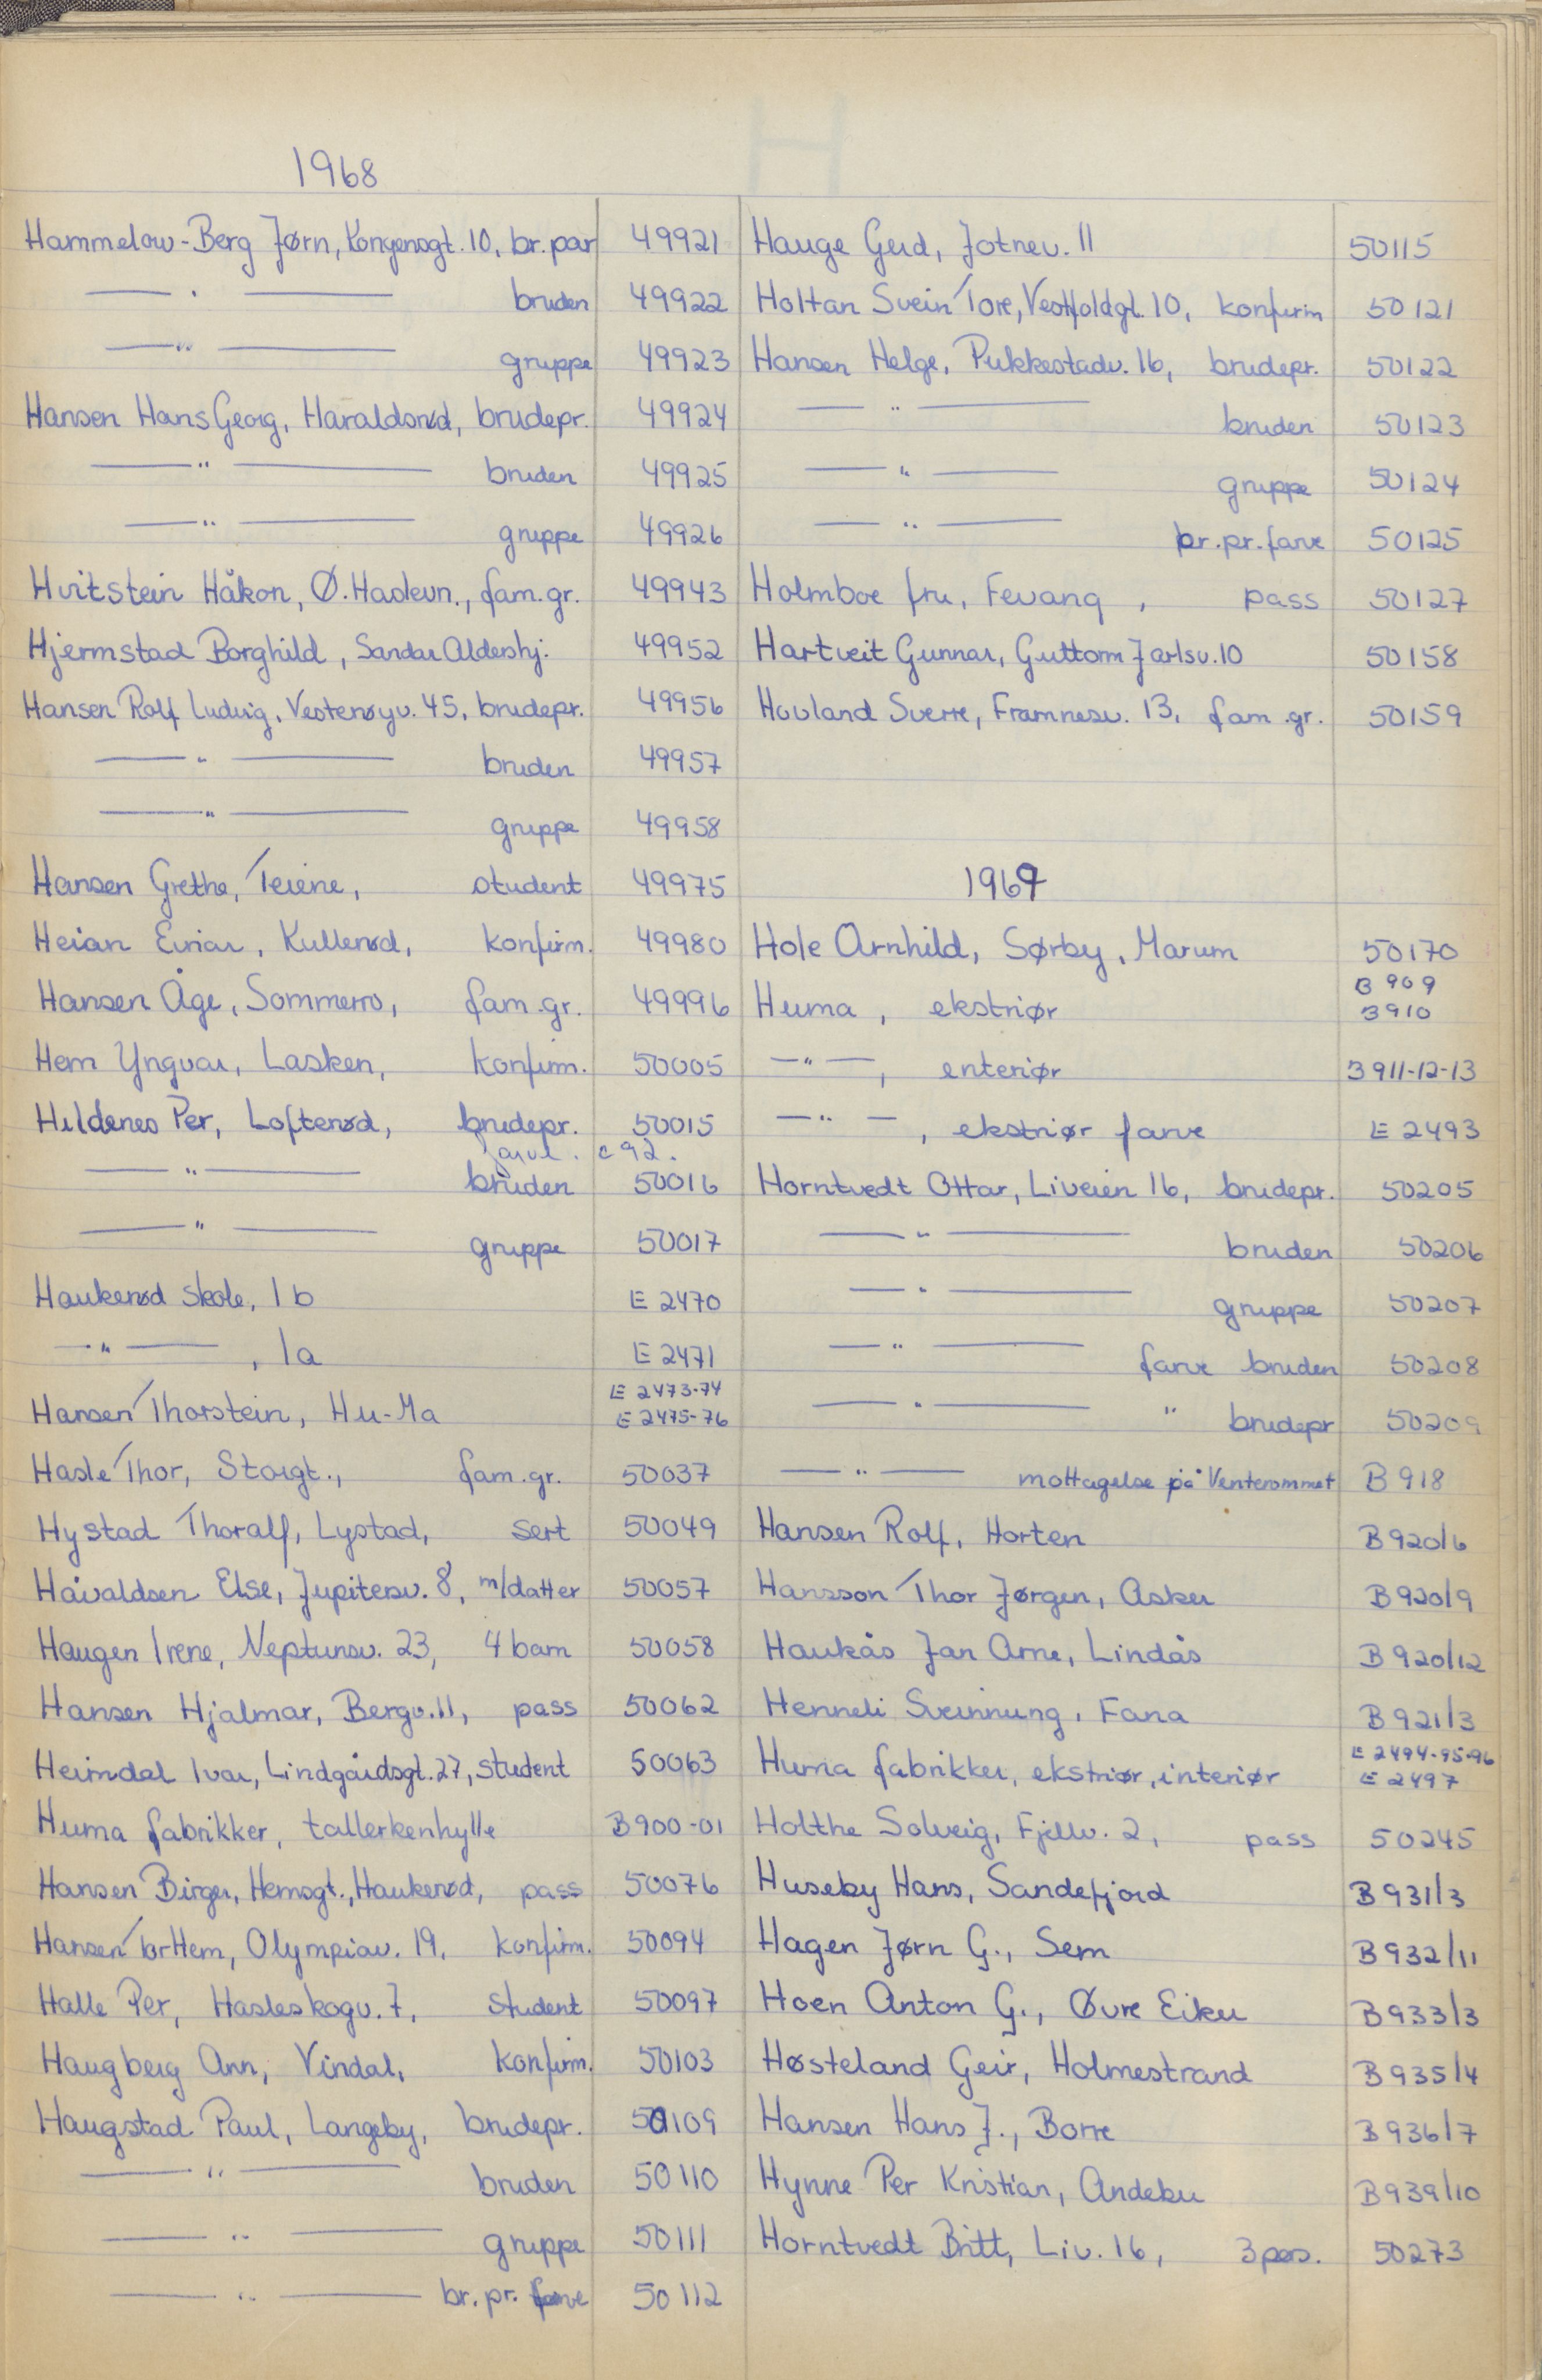 1968
Hammelow-Berg Jørn, Kongensgt. 10, br. par 49921
— " — bruden 49922
— " — gruppe 49923
Hansen Hans Georg, Haraldsrød, brudepr. 49924
— " — bruden 49925
— " — gruppe 49926
Hvitstein Håkon, Ø. Haslevn., fam. gr. 49943
Hjermstad Borghild, Sandar Aldershj. 49952
Hansen Rolf Ludvig, Vesterøyv. 45, brudepr. 49956
— " — bruden 49957
— " — gruppe 49958
Hansen Grethe, Teiene, student 49975
Heian Einar, Kullerød, konfirm. 49980
Hansen Åge, Sommerro, fam. gr. 49996
Hem Yngvar, Lasken, konfirm. 50005
Hildenes Per, Lofterød, brudepr. 50015
farve. c 92.
— " — bruden 50016
— " — gruppe 50017
Haukerød skole, 1b E 2470
— " —, 1a E 2471
Hansen Thorstein, Hu-Ma E 2473-74
E 2475-76
Hasle Thor, Storgt., fam. gr. 50037
Hystad Thoralf, Lystad, sert 50049
Håvaldsen Else, Jupitersv. 8, m/datter 50057
Haugen Irene, Neptunsv. 23, 4 barn 50058
Hansen Hjalmar, Bergv. 11, pass 50062
Heimdal Ivar, Lindgårdsgt. 27, student 50063
Huma fabrikker, tallerkenhylle B 900-01
Hansen Birger, Hemsgt., Haukerød, pass 50076
Hansen Tor Hem, Olympiav. 19, konfirm. 50094
Halle Per, Hasleskogv. 7, student 50097
Haugberg Ann, Vindal, konfirm. 50103
Haugstad Paul, Langeby, brudepr. 50109
— " — bruden 50110
— " — gruppe 50111
— " — br. pr. farve 50112
H
Hauge Gerd, Jotnev. 11 50115
Holtan Svein Tore, Vestfoldgt. 10, konfirm 50121
Hansen Helge, Pukkestadv. 16, brudepr. 50122
— " — bruden 50123
— " — gruppe 50124
— " — br. pr. farve 50125
Holmboe fru, Fevang, pass 50127
Hartveit Gunnar, Guttorm Jarlsv. 10 50158
Hovland Sverre, Framnesv. 13, fam. gr. 50159
1969
Hole Arnhild, Sørby, Marum 50170
Huma, ekstriør B 909
B 910
— " —, enteriør B 911-12-13
— " —, ekstriør farve E 2493
Horntvedt Ottar, Liveien 16, brudepr. 50205
— " — bruden 50206
— " — gruppe 50207
— " — farve bruden 50208
— " — " brudepr 50209
— " — mottagelse på Venterommet B 918
Hansen Rolf, Horten B 920/6
Hansson Thor Jørgen, Asker B 920/9
Haukås Jan Arne, Lindås B 920/12
Henneli Sveinnung, Fana B 921/3
Huma fabrikker, ekstriør, interiør E 2494-95-96
E 2497
Holthe Solveig, Fjellv. 2, pass 50245
Huseby Hans, Sandefjord B 931/3
Hagen Jørn G., Sem B 932/11
Hoen Anton G., Øvre Eiker B 933/3
Høsteland Geir, Holmestrand B 935/4
Hansen Hans J., Borre B 936/7
Hynne Per Kristian, Andebu B 939/10
Horntvedt Britt, Liv. 16, 3 pers. 50273